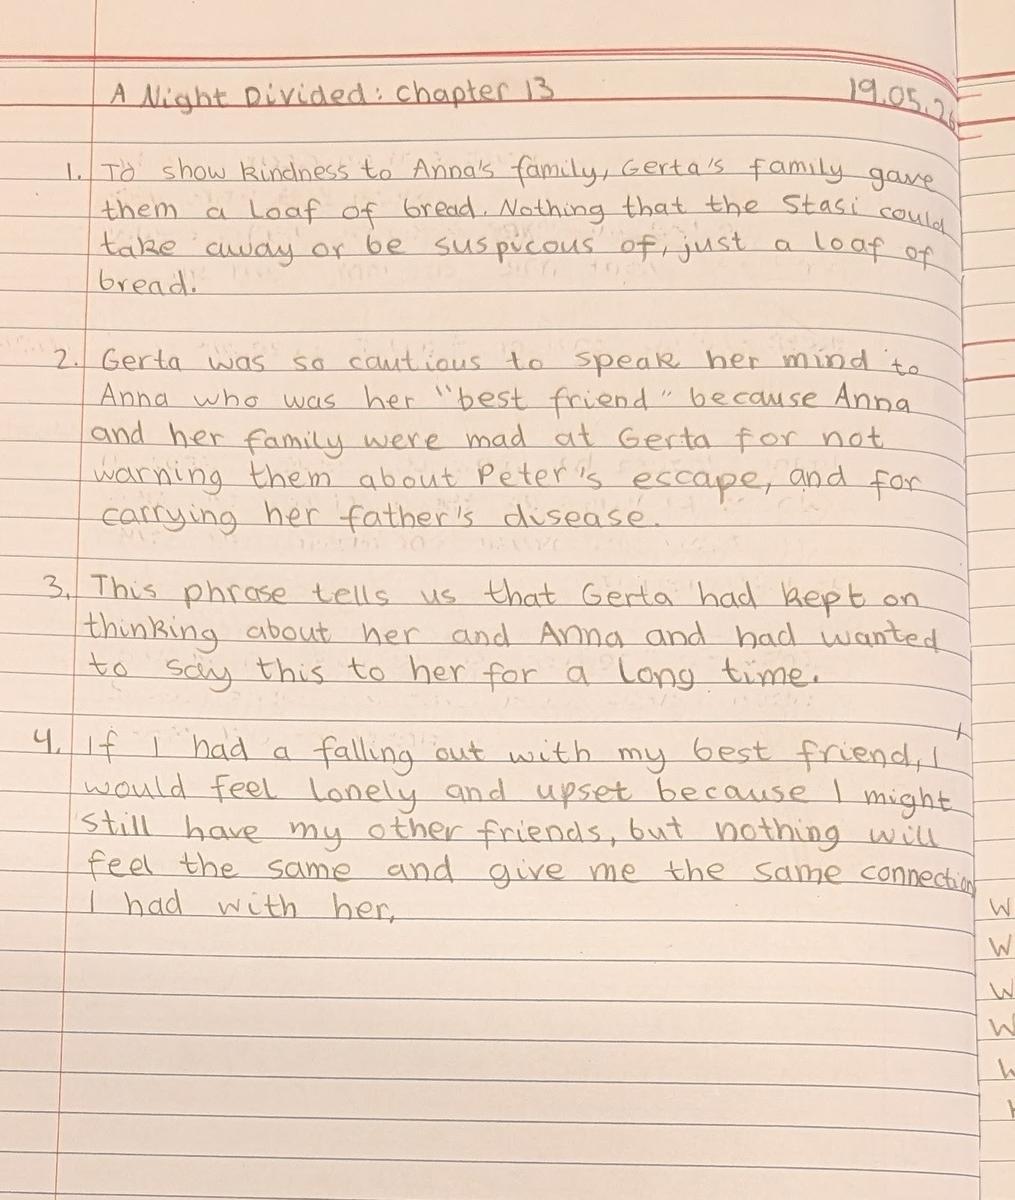 A Night Divided: Chapter 13 19.05.26
1. To show kindness to Anna's family, Gerta's family gave
them a loaf of bread. Nothing that the Stasi could
take away or be suspicous of, just a loaf of
bread.
2. Gerta was so cautious to speak her mind to
Anna who was her "best friend" because Anna
and her family were mad at Gerta for not
warning them about Peter's escape, and for
carrying her father's disease.
3. This phrase tells us that Gerta had kept on
thinking about her and Anna and had wanted
to say this to her for a long time.
4. If I had a falling out with my best friend, I
would feel lonely and upset because I might
still have my other friends, but nothing will
feel the same and give me the same connection
I had with her.
W
W
W
W